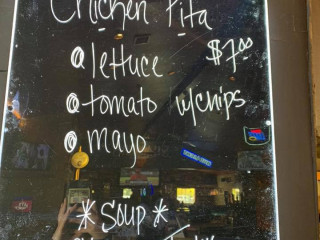 Chicken Pita
lettuce $7.00
tomato w/chips
mayo
* Soup *